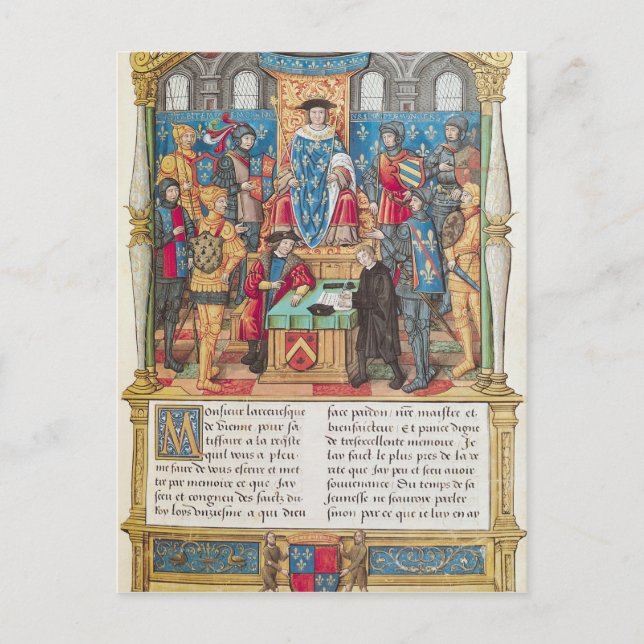 Monsieur larcevesque
de Vienne pour sa
tiffaire a la reqste
quil vous a pleu
me faire de vous escrire et met
tre par memoire ce que Jay
sceu et congneu des faictz du
Roy Loys unziesme a qui dieu
face pardon, nre maistre et
bienfaicteur: Et prince digne
de tresexcellente memoire. Je
lay faict le plus pres de la ve
rite que Jay peu et sceu avoir
souvenance. Du temps de sa
Jeunesse ne scauroye parler
sinon par ce que je luy en ay